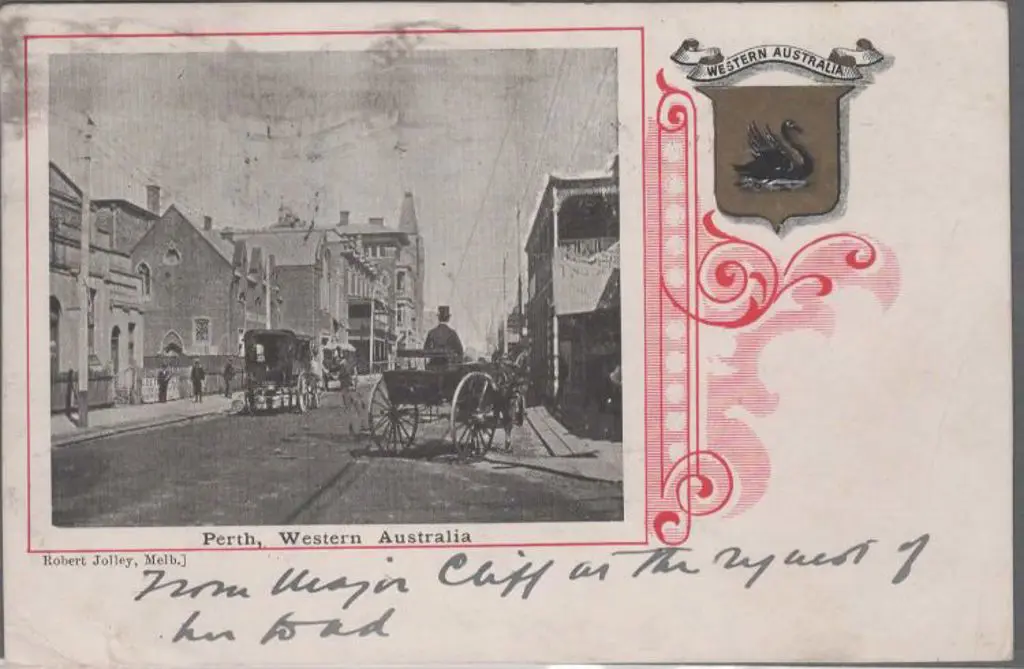 WESTERN AUSTRALIA
Perth, Western Australia
Robert Jolley, Melb.]
From Major Cliff at the request of
her